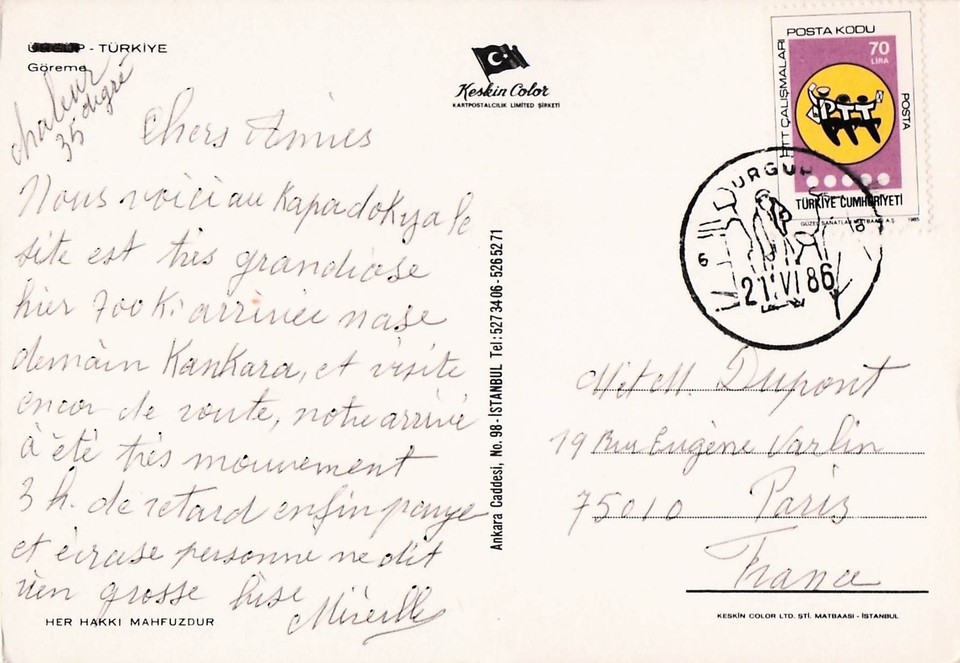 ÜRGÜP - TÜRKİYE
Göreme
chaleur
35 digré
Keskin Color
KARTPOSTALCILIK LIMITED ŞİRKETİ
POSTA KODU
70
LİRA
PTT ÇALIŞMALARI
PTT
POSTA
TÜRKİYE CUMHURİYETİ
GÜZEL SANATLAR MATBAASI A.Ş. 1985
ÜRGÜP
21 VI 86
Chers Amies
Nous voici au Kapadokya le
site est très grandiose
hier 700 Ki arrivée nase
demain Kankara, et visite
encor de route, notre arrivé
à été très mouvement
3 h. de retard enfin
et écrase personne ne dit
rien grosse bise
Mireille
Ankara Caddesi, No. 98 - İSTANBUL Tel: 527 34 06 - 526 52 71
M et M. Dupont
19 Rue Eugène Varlin
75010 Paris
France
HER HAKKI MAHFUZDUR
KESKİN COLOR LTD. ŞTİ. MATBAASI - İSTANBUL